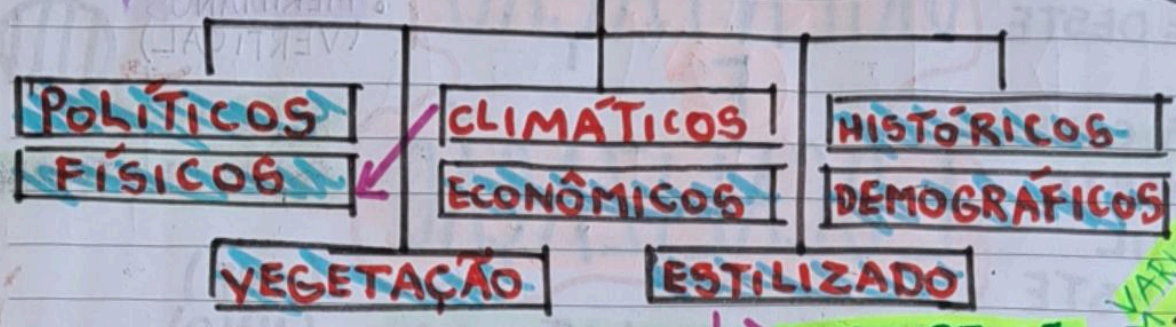 POLÍTICOS
FÍSICOS
CLIMÁTICOS
ECONÔMICOS
HISTÓRICOS
DEMOGRÁFICOS
VEGETAÇÃO
ESTILIZADO